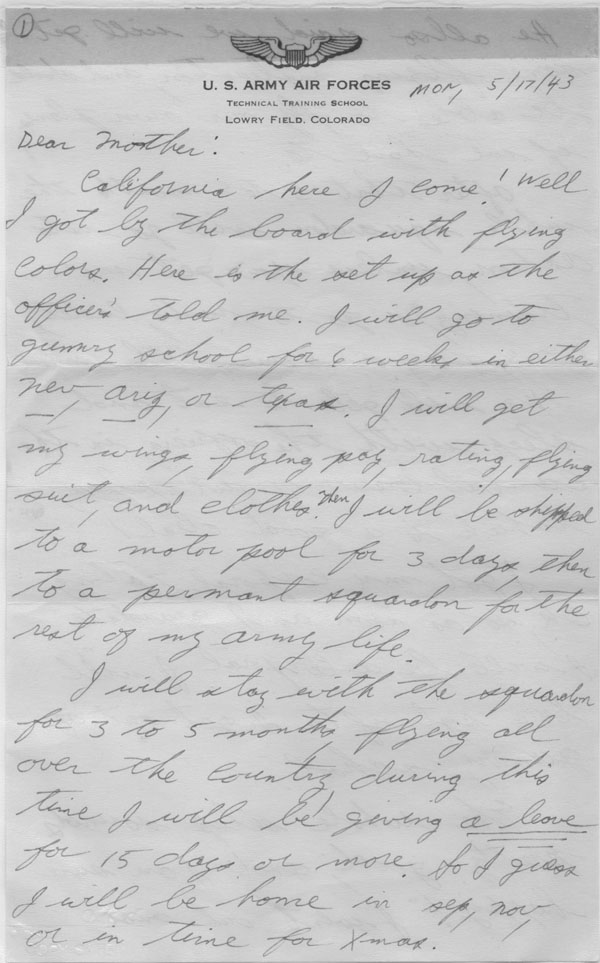 1
U. S. ARMY AIR FORCES
TECHNICAL TRAINING SCHOOL
LOWRY FIELD, COLORADO
Mon, 5/17/43
Dear Mother:
California here I come! Well
I got by the board with flying
colors. Here is the set up as the
officers told me. I will go to
gunnry school for 6 weeks in either
nev, ariz, or texas. I will get
my wings, flying pay, rating, flying
suit, and clothes. Then I will be shipped
to a motor pool for 3 days, then
to a permant squardon for the
rest of my army life.
I will stay with the squardon
for 3 to 5 months, flying all
over the country, during this
time I will be giving a leave
for 15 days or more. So I guess
I will be home in sep, nov,
or in time for X-mas.